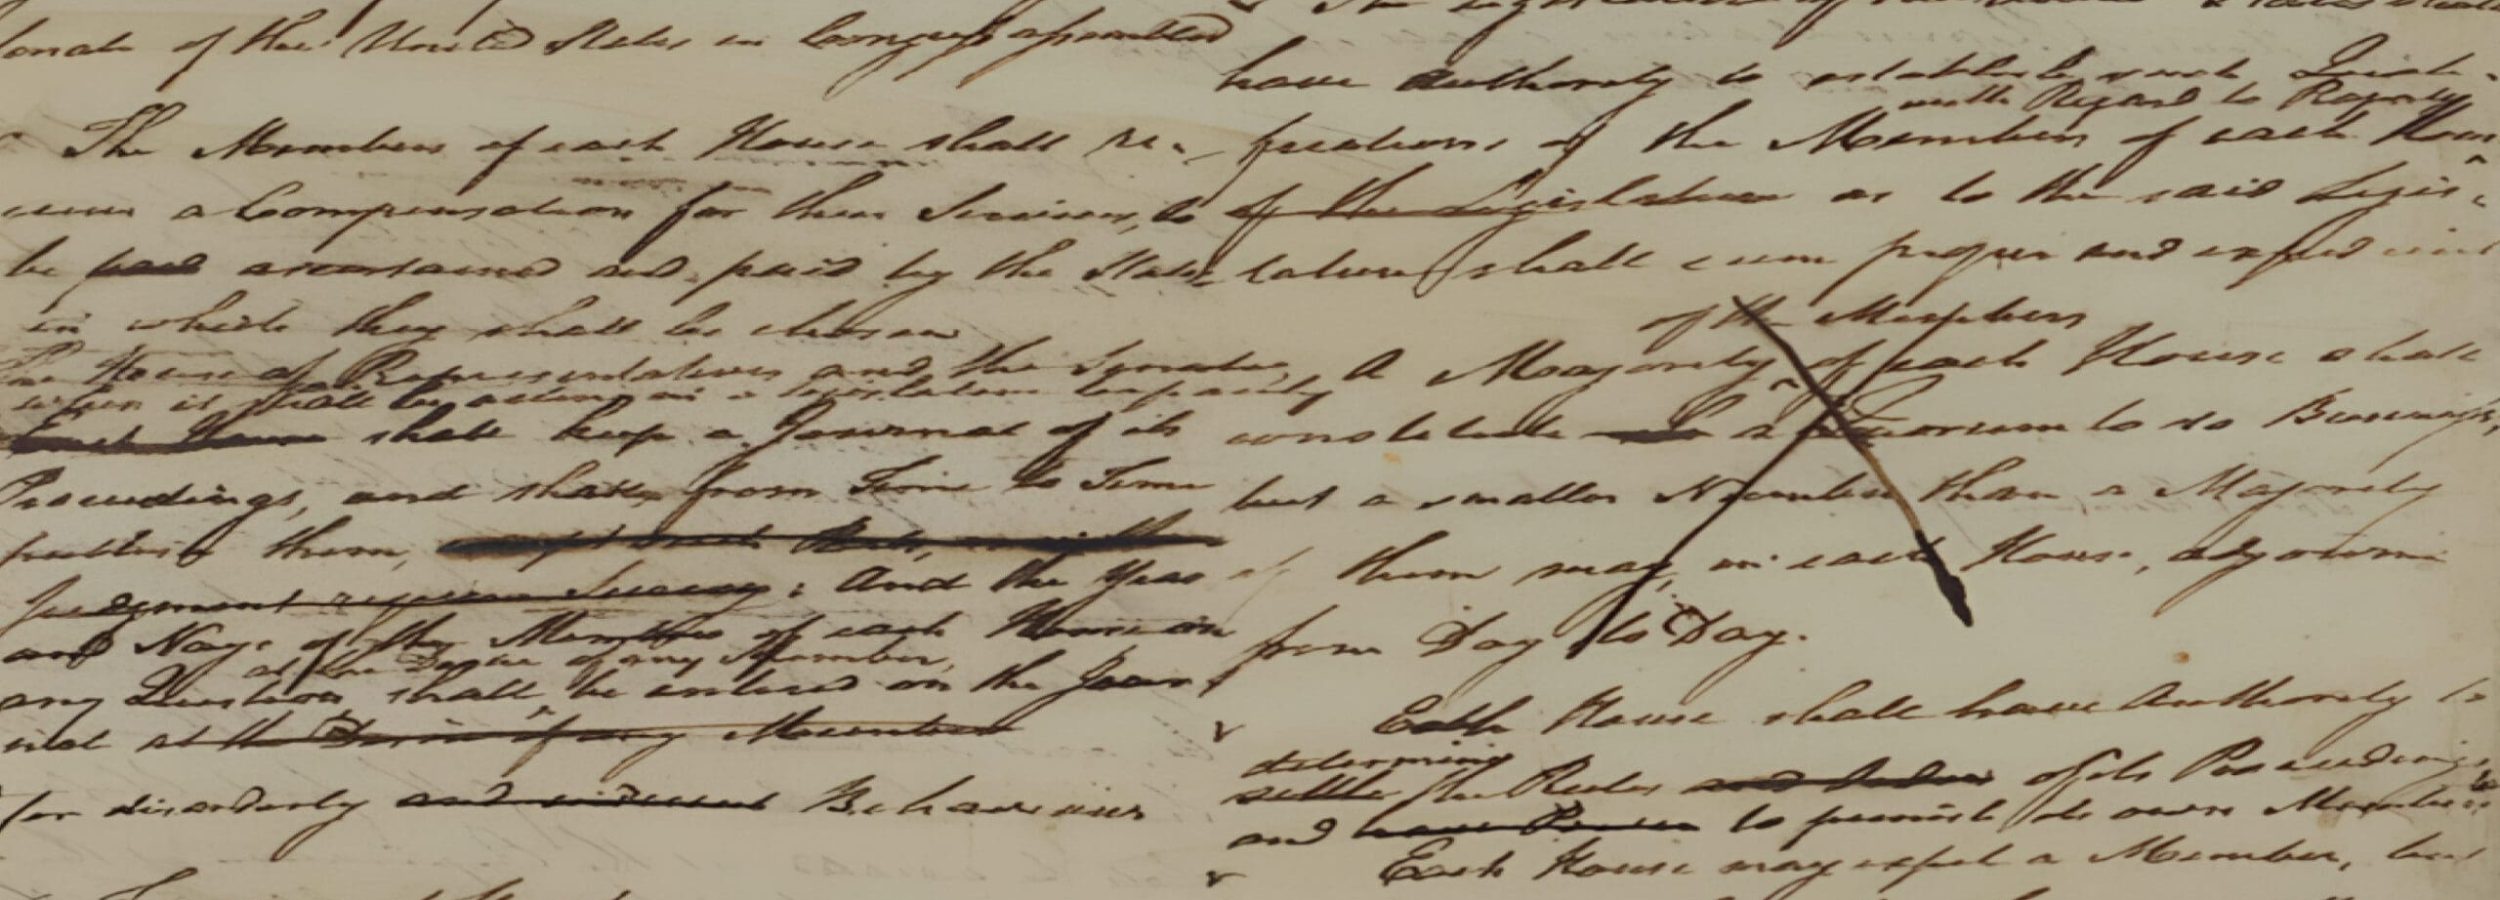 of the United States in Congress assembled
The Members of each House shall re-
a Compensation for their Services, to
be paid ascertained and paid by the State,
in which they shall be chosen
The House of Representatives and the Senate,
when it shall be acting in a legislative Capacity,
Each House shall keep a Journal of its
Proceedings, and shall, from Time to Time
publish them, except such Parts,
Judgment require Secrecy; And the Yeas
and Nays of the Members of each House on
at the Desire of any Member,
any Question shall be entered on the Jour,
nal at the Desire of any Member
for disorderly and indecent Behaviour
have Authority to establish such Quali-
with Regard to Property
fications of the Members of each House
of the Legislature as to the said Legis-
lature shall seem proper and expedient
of the Members
A Majority of each House shall
constitute a Quorum to do Business,
but a smaller Number than a Majority
of them may, in each House, adjourn
from Day to Day.
Each House shall have Authority to
determine
settle the Rules and Orders of its Proceedings,
and have Power to punish its own Members
Each House may expel a Member, but